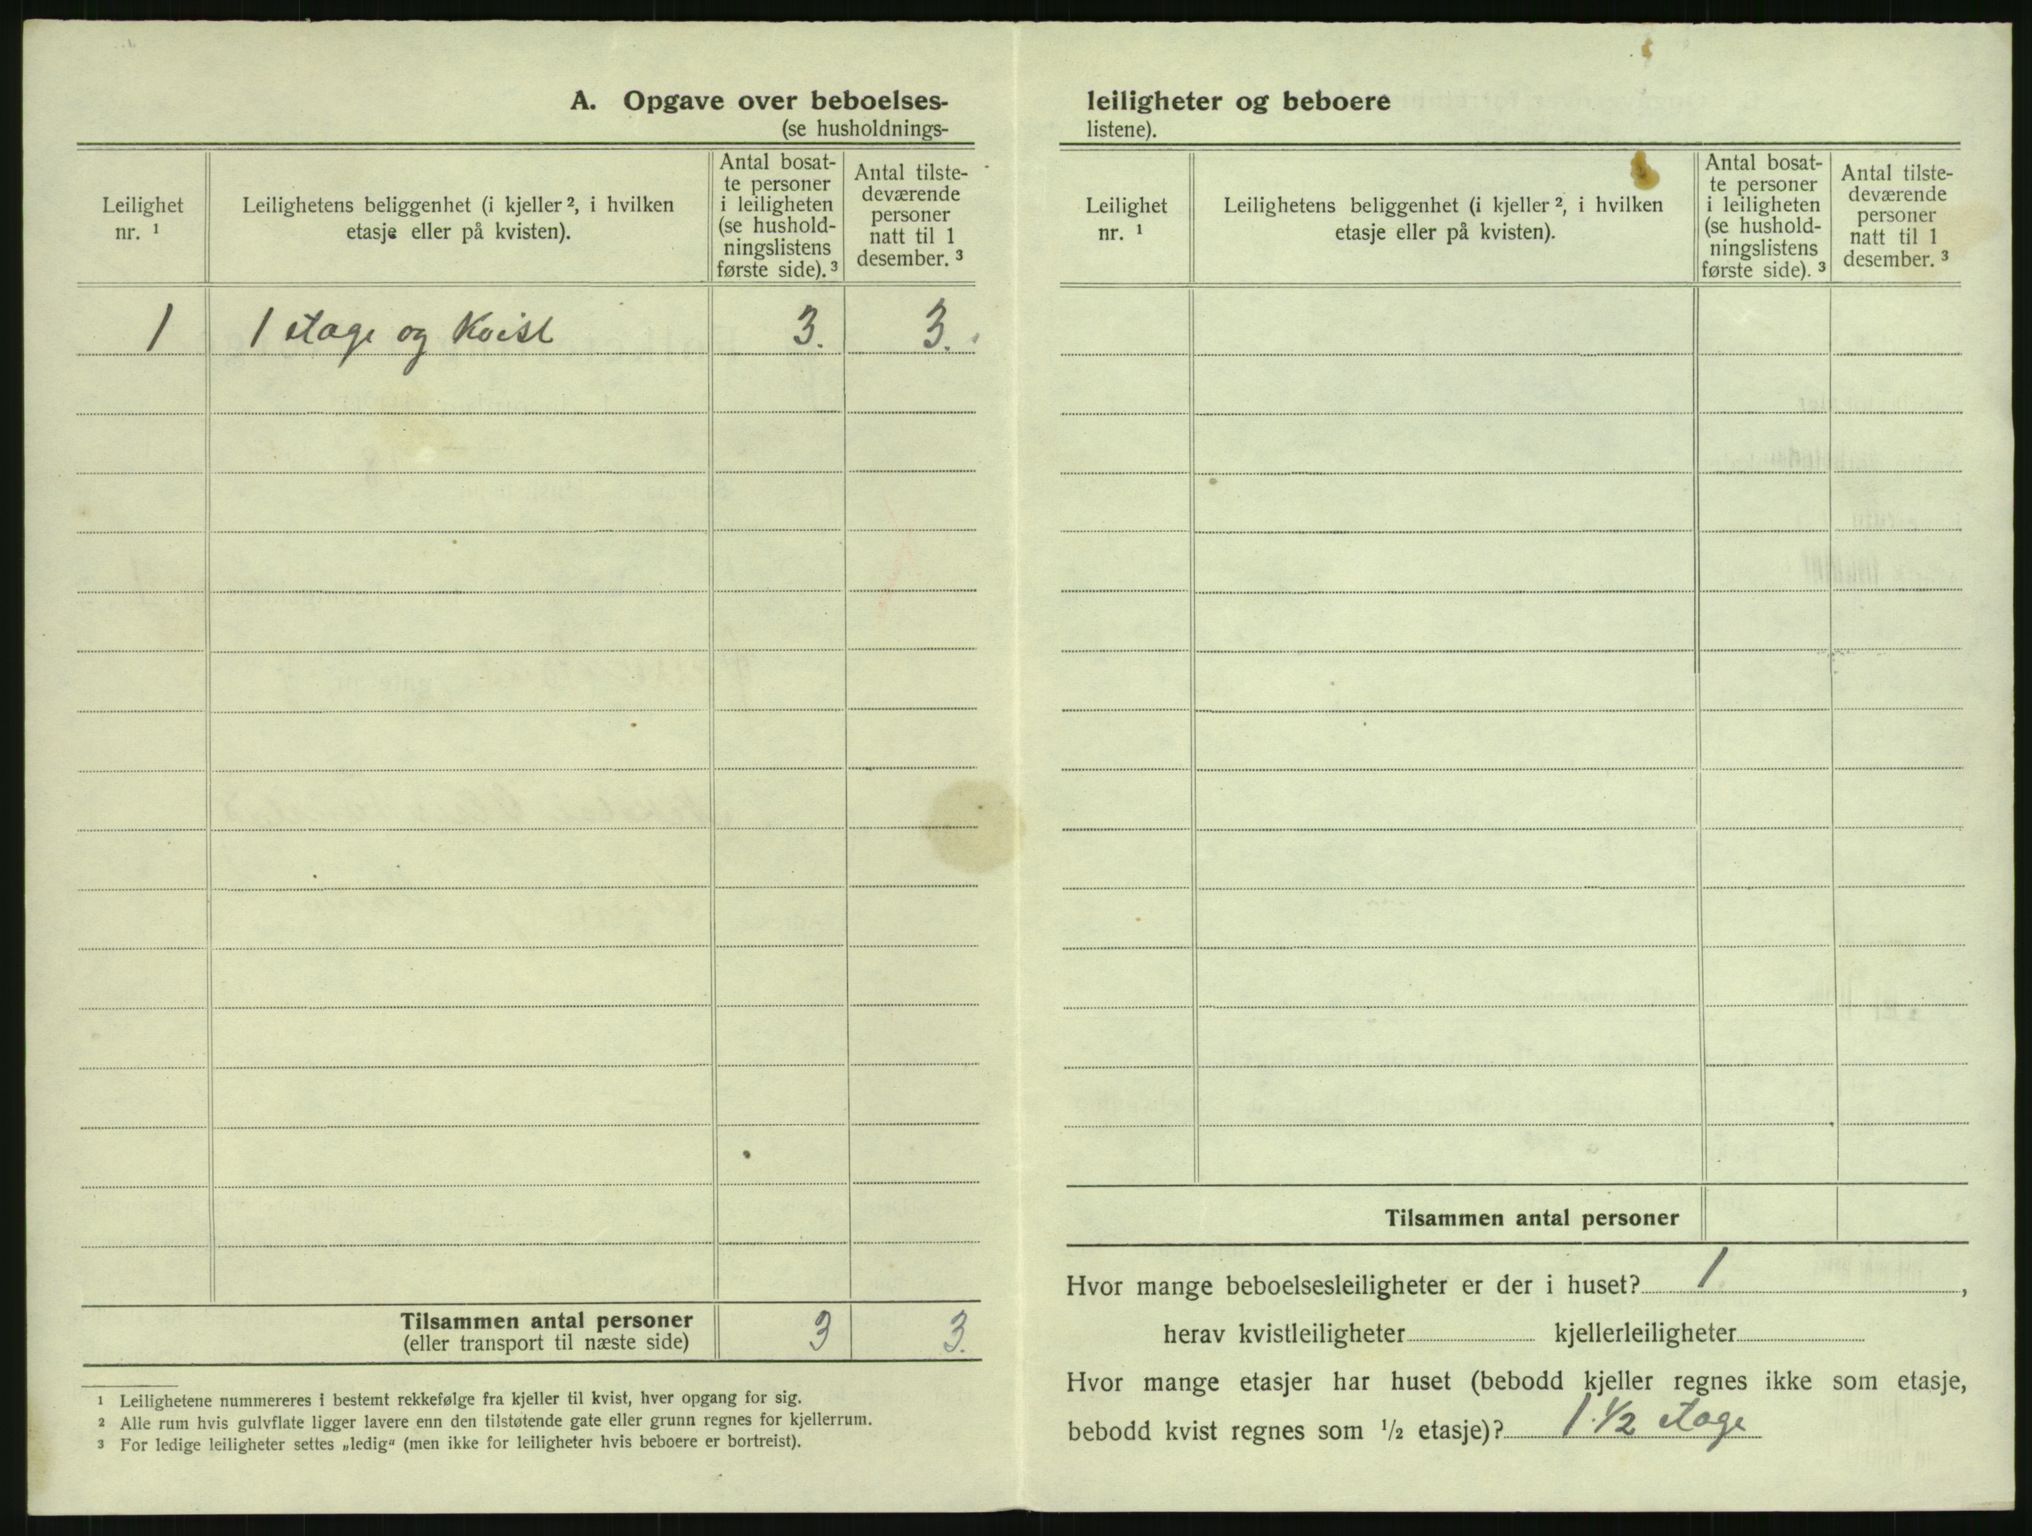 A. Opgave over beboelses-
(se husholdnings-
Leilighet
nr. ¹
Leilighetens beliggenhet (i kjeller ², i hvilken
etasje eller på kvisten).
Antal bosat-
te personer
i leiligheten
(se hushold-
ningslistens
første side). ³
Antal tilste-
deværende
personer
natt til 1
desember. ³
1 1 etage og Kvist 3. 3.
Tilsammen antal personer 3 3.
(eller transport til næste side)
¹ Leilighetene nummereres i bestemt rekkefølge fra kjeller til kvist, hver opgang for sig.
² Alle rum hvis gulvflate ligger lavere enn den tilstøtende gate eller grunn regnes for kjellerrum.
³ For ledige leiligheter settes „ledig" (men ikke for leiligheter hvis beboere er bortreist).
leiligheter og beboere
listene).
Leilighet
nr. ¹
Leilighetens beliggenhet (i kjeller ², i hvilken
etasje eller på kvisten).
Antal bosat-
te personer
i leiligheten
(se hushold-
ningslistens
første side). ³
Antal tilste-
deværende
personer
natt til 1
desember. ³
Tilsammen antal personer
Hvor mange beboelsesleiligheter er der i huset? 1,
herav kvistleiligheter kjellerleiligheter
Hvor mange etasjer har huset (bebodd kjeller regnes ikke som etasje,
bebodd kvist regnes som ½ etasje)? 1.½ etage